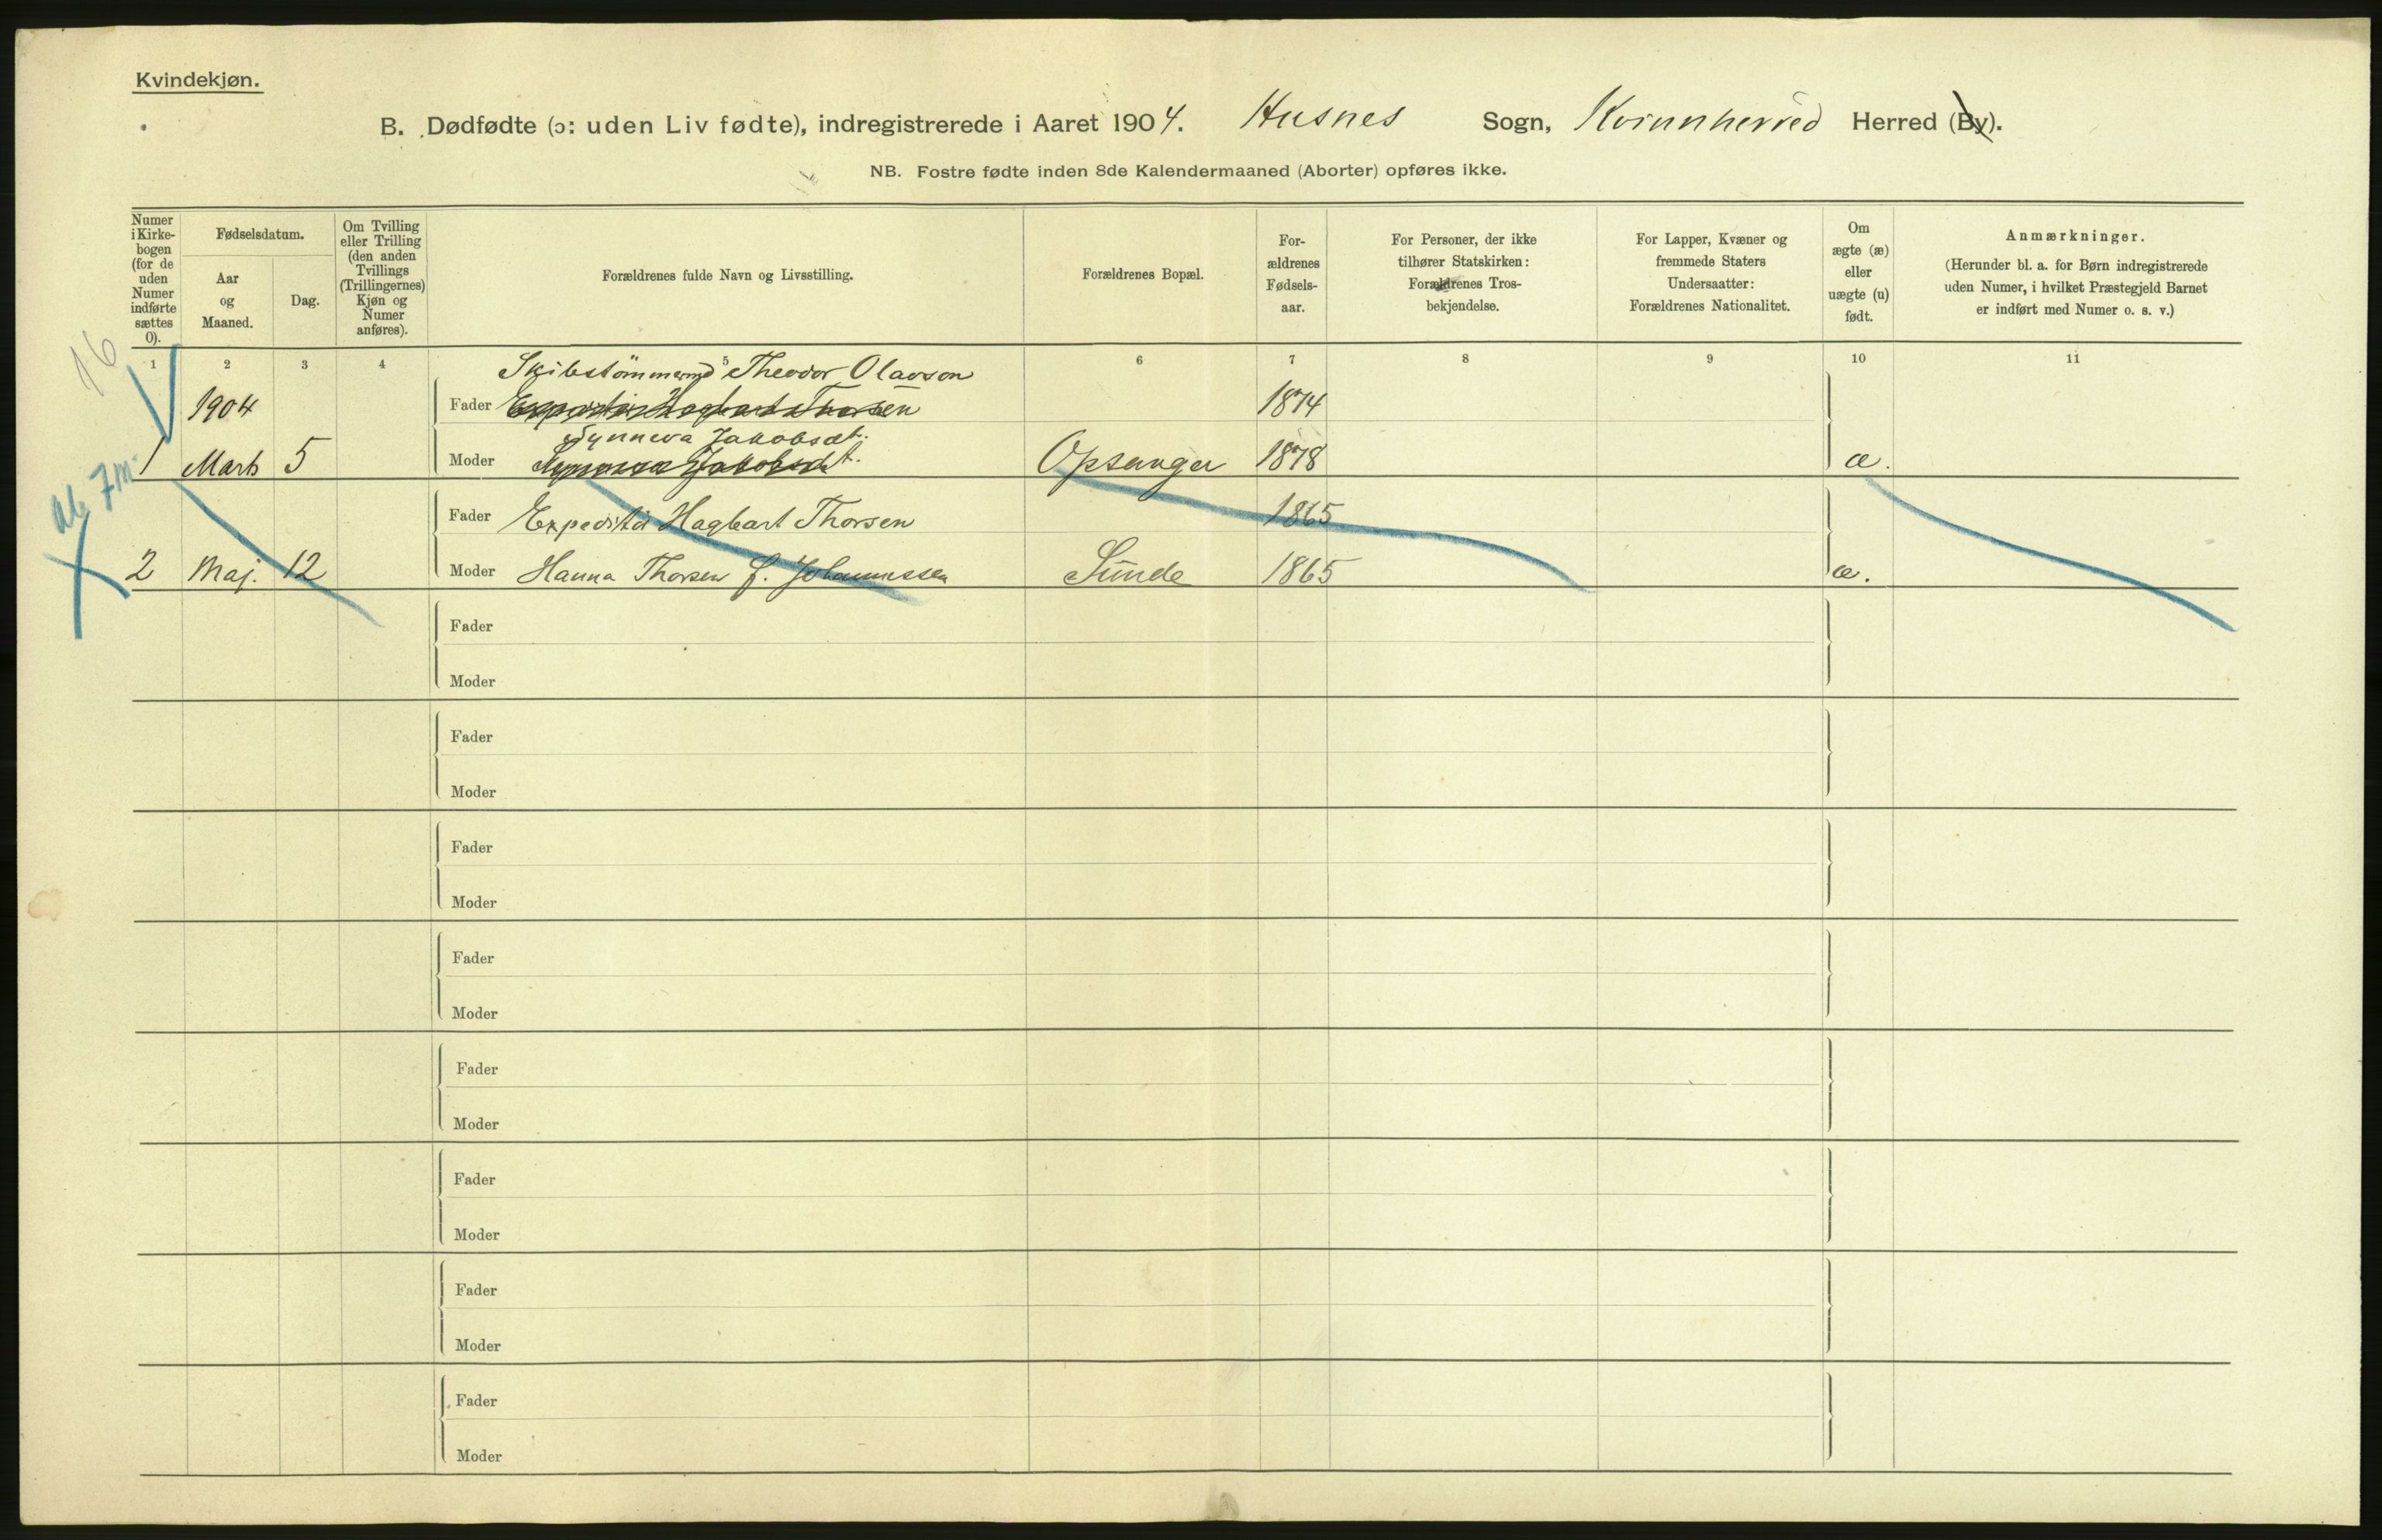 Kvindekjøn.
B. Dødfødte (ɔ: uden Liv fødte), indregistrerede i Aaret 1904. Husnes Sogn, Kvinnherred Herred (By).
NB. Fostre fødte inden 8de Kalendermaaned (Aborter) opføres ikke.
Numer
i Kirke-
bogen
(for de
uden
Numer
indførte
sættes
0).
Fødselsdatum.
Aar
og
Maaned.
Dag.
Om Tvilling
eller Trilling
(den anden
Tvillings
(Trillingernes)
Kjøn og
Numer
anføres).
Forældrenes fulde Navn og Livsstilling.
Forældrenes Bopæl.
For-
ældrenes
Fødsels-
aar.
For Personer, der ikke
tilhører Statskirken:
Forældrenes Tros-
bekjendelse.
For Lapper, Kvæner og
fremmede Staters
Undersaatter:
Forældrenes Nationalitet.
Om
ægte (æ)
eller
uægte (u)
født.
Anmærkninger.
(Herunder bl. a. for Børn indregistrerede
uden Numer, i hvilket Præstegjeld Barnet
er indført med Numer o. s. v.)
16
1 2 3 4 5 6 7 8 9 10 11
Skibstömmermd Theodor Olavson
1904 Fader Expeditör Hagbart Thorsen 1874
Synneva Jakobsdt.
1 Marts 5 Moder Synneva Jakobsdt. Opsanger 1878 æ.
Ab. 7 m.
Fader Expeditör Hagbart Thorsen 1865
2 Maj. 12 Moder Hanna Thorsen f. Johannessen Sunde 1865 æ.
Fader
Moder
Fader
Moder
Fader
Moder
Fader
Moder
Fader
Moder
Fader
Moder
Fader
Moder
Fader
Moder